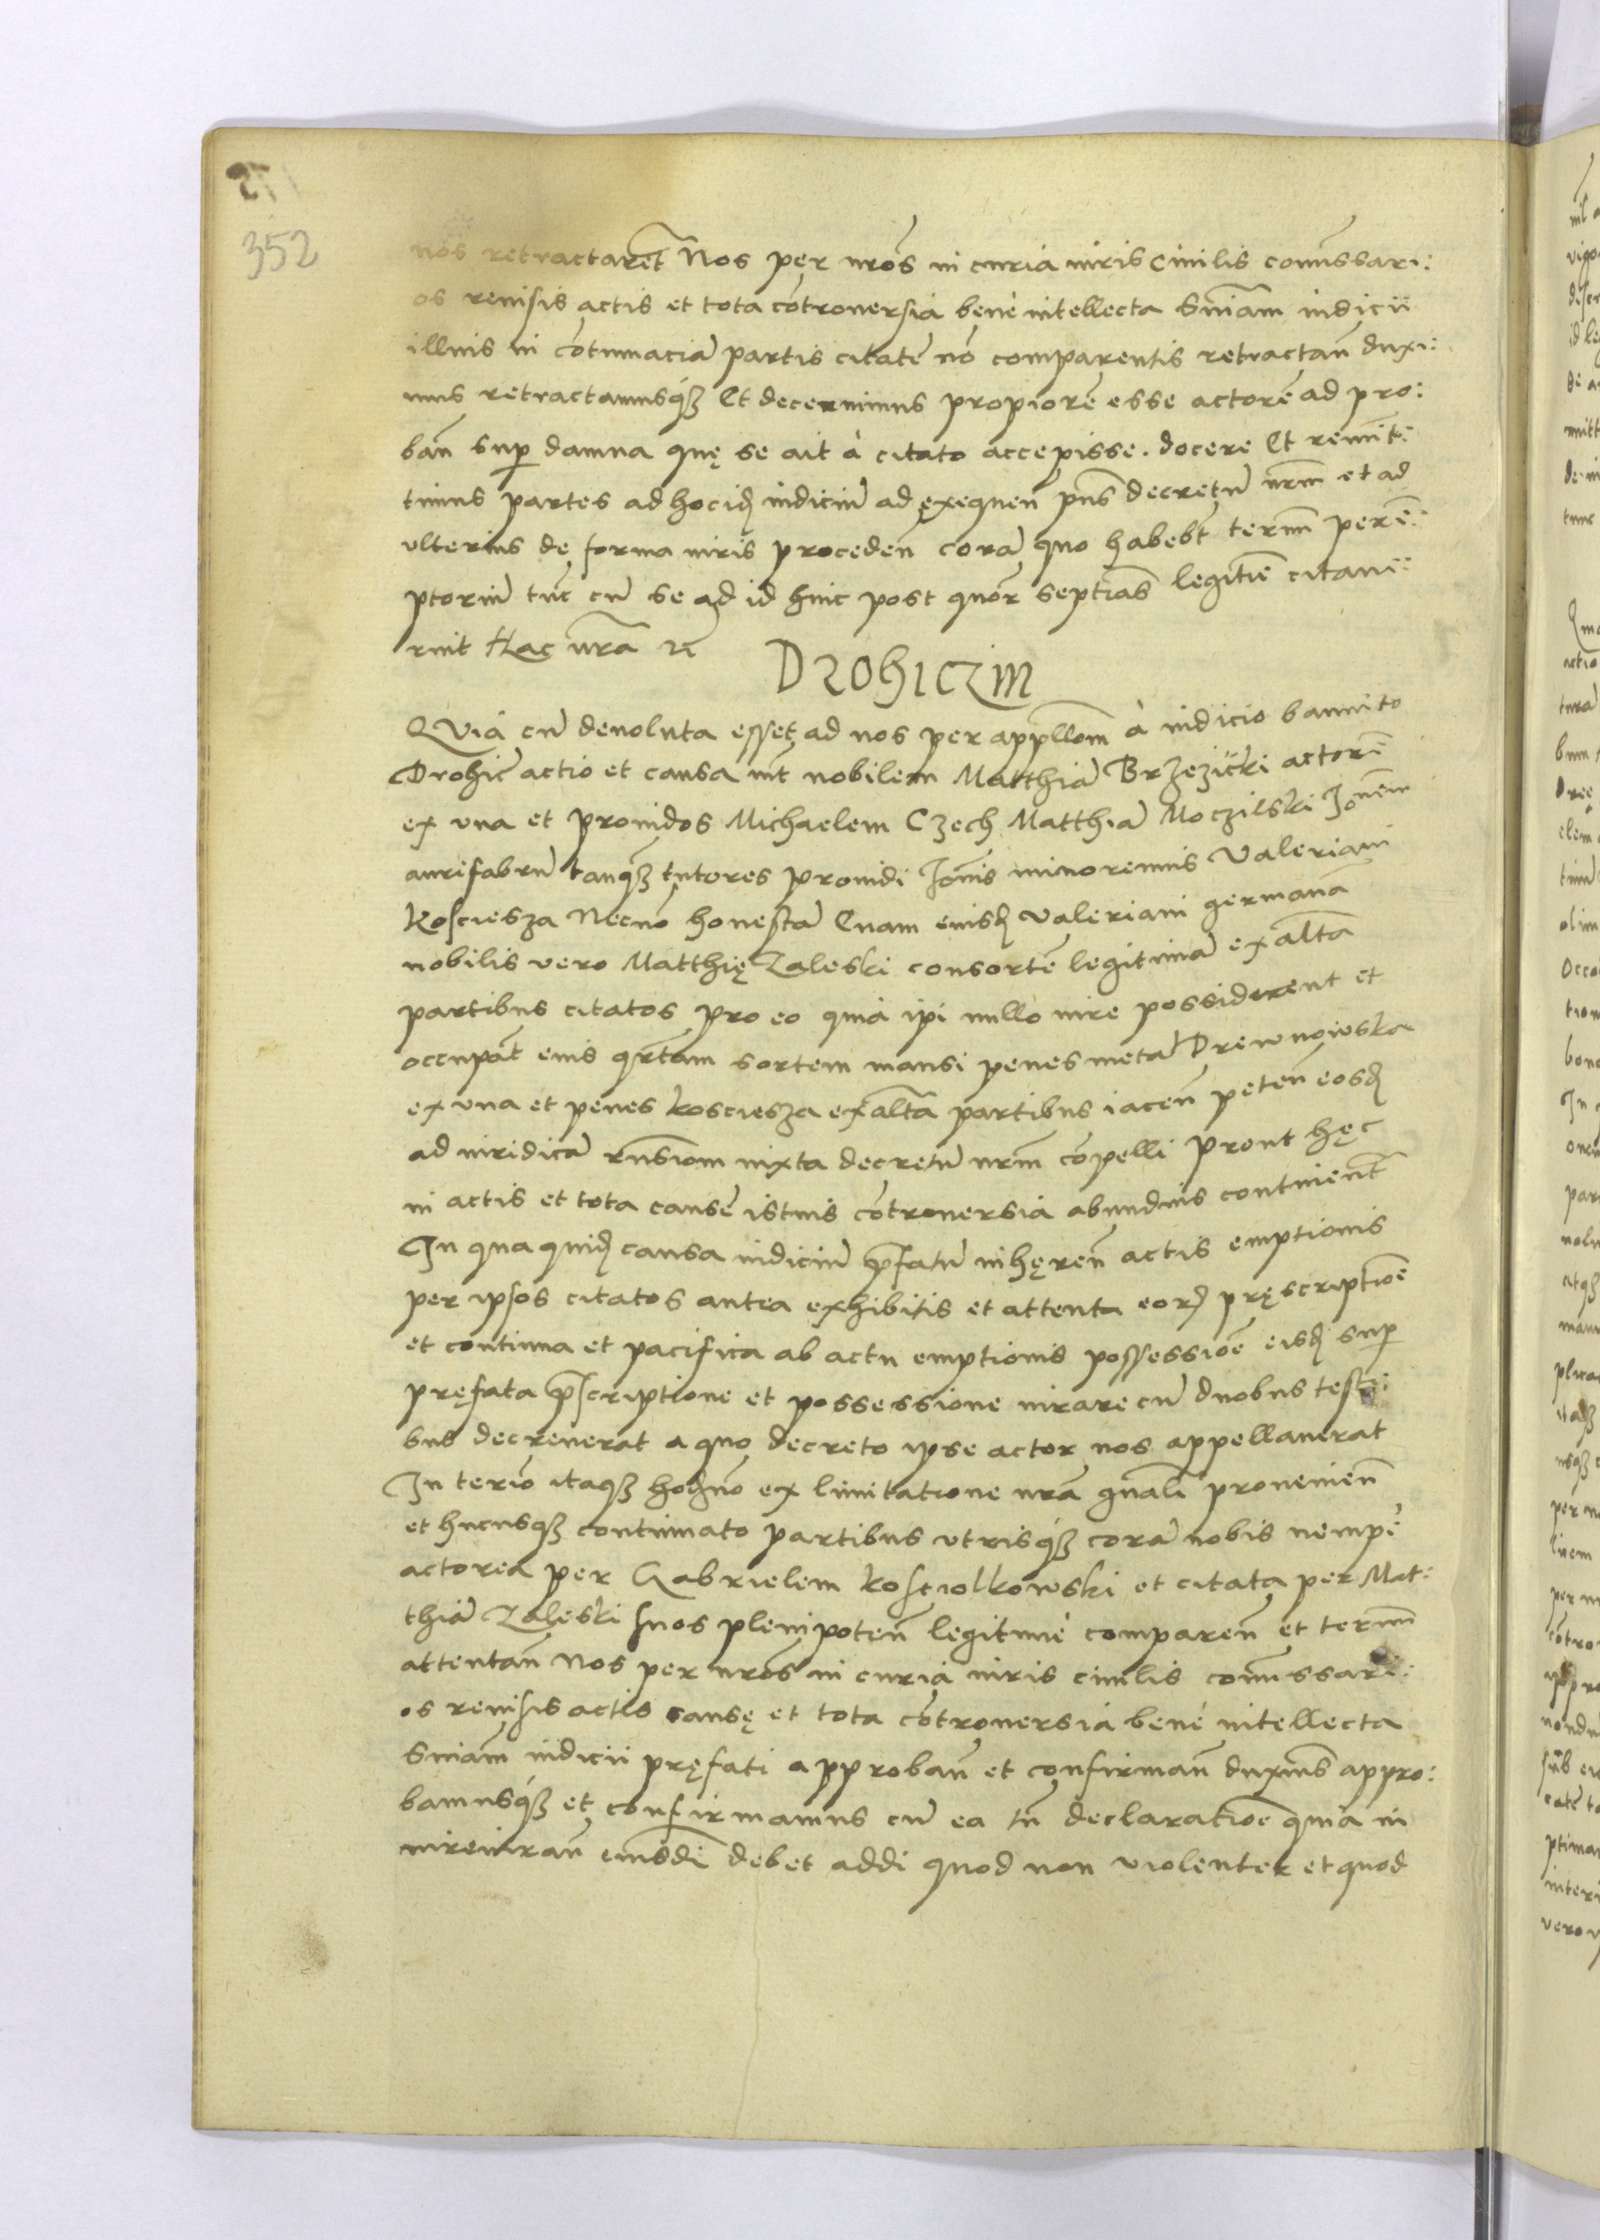 352
nos retractaret̃ Nos per nr̃os in curia iuris Ciuilis com̃issari:
os reuisis actis et tota cōtrouersia bene intellecta Sñiam iudicii
illius in cōtumaciā partis citatę nō comparentis retractañ duxi:
mus retractamusq́ꝫ Et decernimus propiorē esse actorē ad pro:
bañ suꝑ damna quę se ait à citato accepisse. docere Et remit:
timus partes ad hoc id iudiciū ad exequeñ pñs decretū nrm̃ et ad
vlterius de forma iuris procedeñ corā quo habebt̃ termm̃ perē:
ptoriū tūc cū se ad id hinc post quor̃ septīas legitīe citaue:
rint Hac nr̃a rc̃
DROHICZIN
QVia cū deuoluta esset ad nos per appllom̃ à iudicio bannito
Drohic̃ actio et causa int̃ nobilem Matthiā Brzezicki actorē
ex vna et prouidos Michaelem Czech Matthiā Moczilski Joñem
aurifabrū tanq̄ꝫ tutores prouidi Joñis minorennis Valeriani
Kosciesza Necnō honestā Euam eiusd̃ Valeriani germanā
nobilis vero Matthię Zaleski consortē legitimā ex alt̃a
partibus citatos pro eo quia ip̃i nullo iure possiderent et
occupāt eius qrtam̃ sortem mansi penes metā Drewnowska
ex vna et penes Kosciesza ex alt̃a partibus iaceñ peteñ eosd̃
ad iuridicā rñsiom̃ iuxta decretū nrm̃ cōpelli Prout hęc
in actis et tota causę istius cōtrouersia abundius continent̃
In qua quid̃ causa iudiciū p̄fatū inhęreñ actis emptionis
per ipsos citatos antea exhibitis et attenta eorꝫ pręscriptioē
et continua et pacifica ab actu emptionis possessioē eisd̃ suꝑ
pręfata p̄scriptione et possessione iurare cū duobus testi:
bus decreuerat a quo decreto ipse actor nos appellauerat
In termīo itaq́ꝫ hodierno ex limitatione nr̃a gñali proueniēn
et hucusq́ꝫ continuato partibus vtrisq́ꝫ corā nobis nempè
actorea per Gabrielem Kosciolkowski et citata per Mat:
thiā Zaleski suos plenipoteñ legitimè compareñ et termm̃
attentañ Nos per nr̃os in curia iuris ciuilis com̃issari:
os reuisis actis causę et tota cōtrouersia benè intellecta
Sñiam iudicii pręfati approbañ et confirmañ duxim̃s appro:
bamusq́ꝫ et confirmamus cū ea tñ declaratioē quia in
iureiurañ eiusdē debet addi quod non violenter et quod